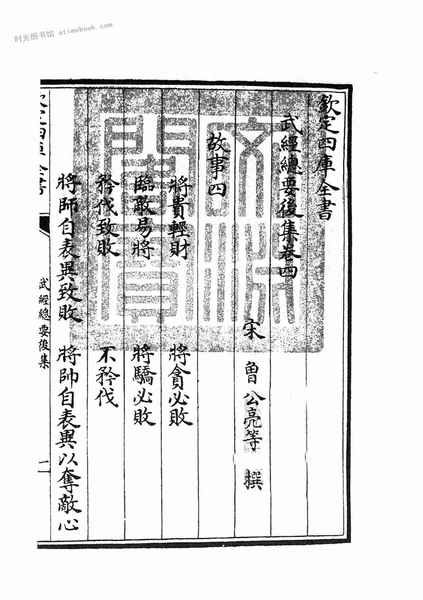 时光图书馆 etimebook.com
欽定四庫全書
武經總要後集卷四
宋 曾公亮等 撰
故事四
將貴輕財 將貪必敗
臨敵易將 將驕必敗
矜伐致敗 不矜伐
將帥自表異致敗 將帥自表異以奪敵心
欽定四庫全書
武經總要後集